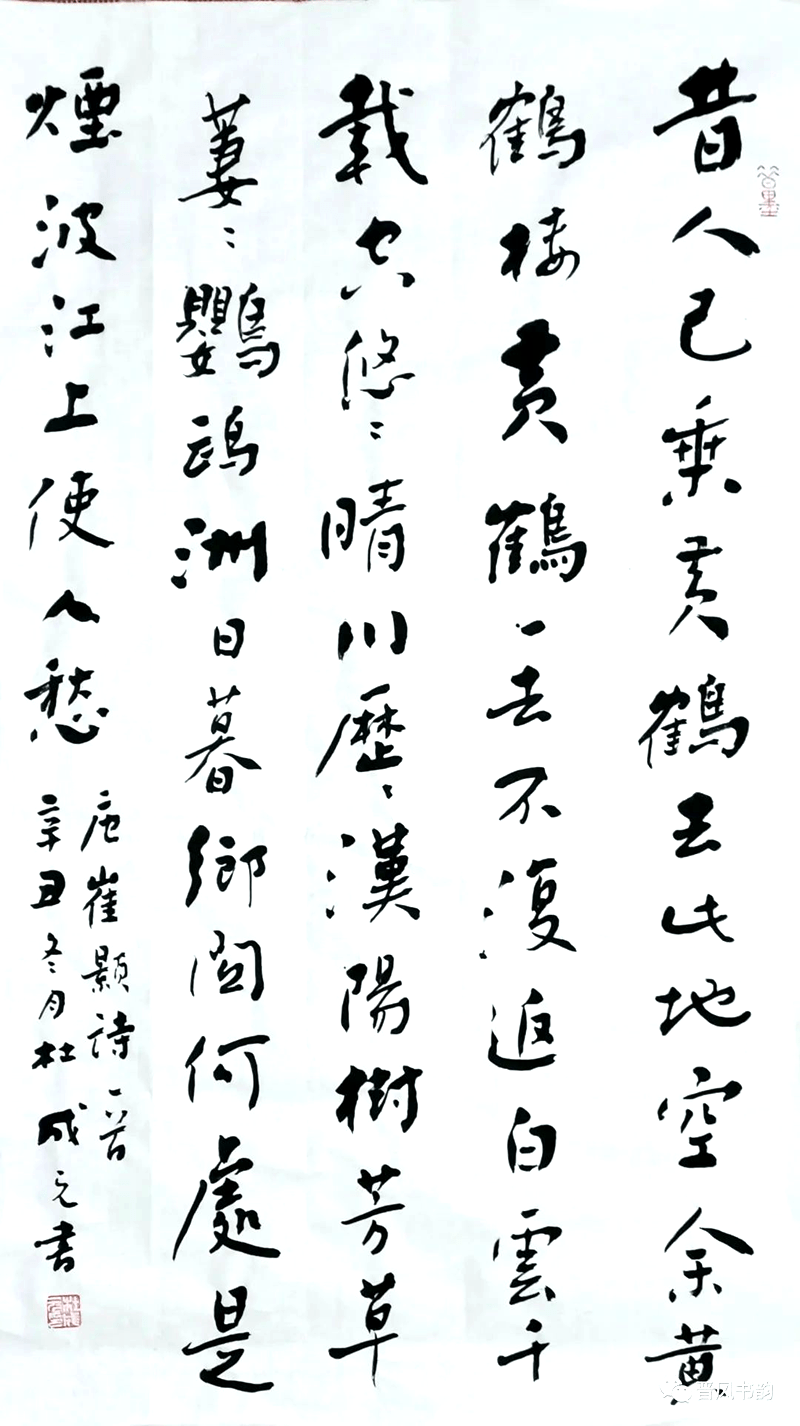 昔人已乘黄鶴去此地空余黄
鶴楼黄鶴一去不復返白雲千
載空悠〻晴川歷〻漢陽樹芳草
萋〻鸚鵡洲日暮鄉関何處是
煙波江上使人愁
唐崔顥詩一首
辛丑冬月杜成元书
晋风书韵